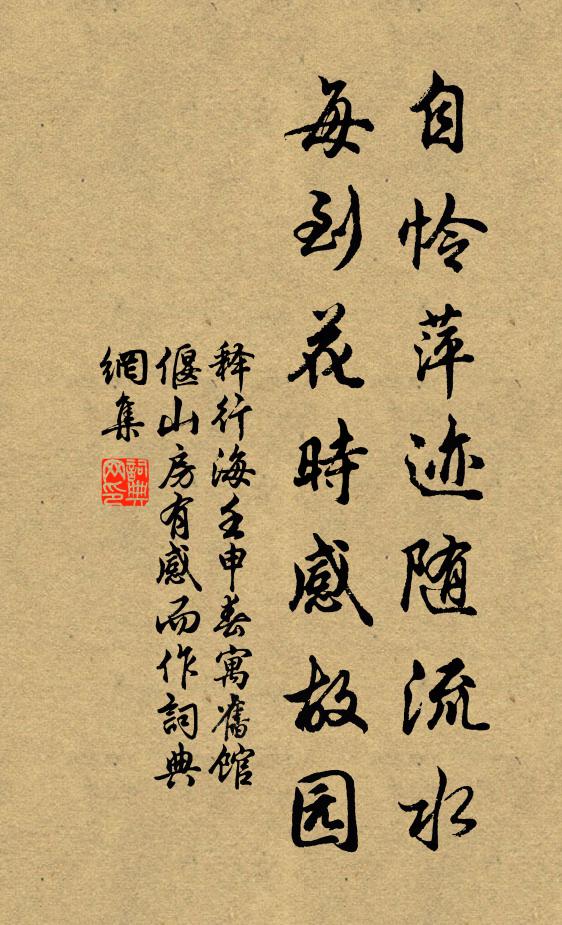 自怜萍迹随流水
每到花時感故园
释行海壬申春寓舊馆
偃山房有感而作詞典
網集
詞典网印